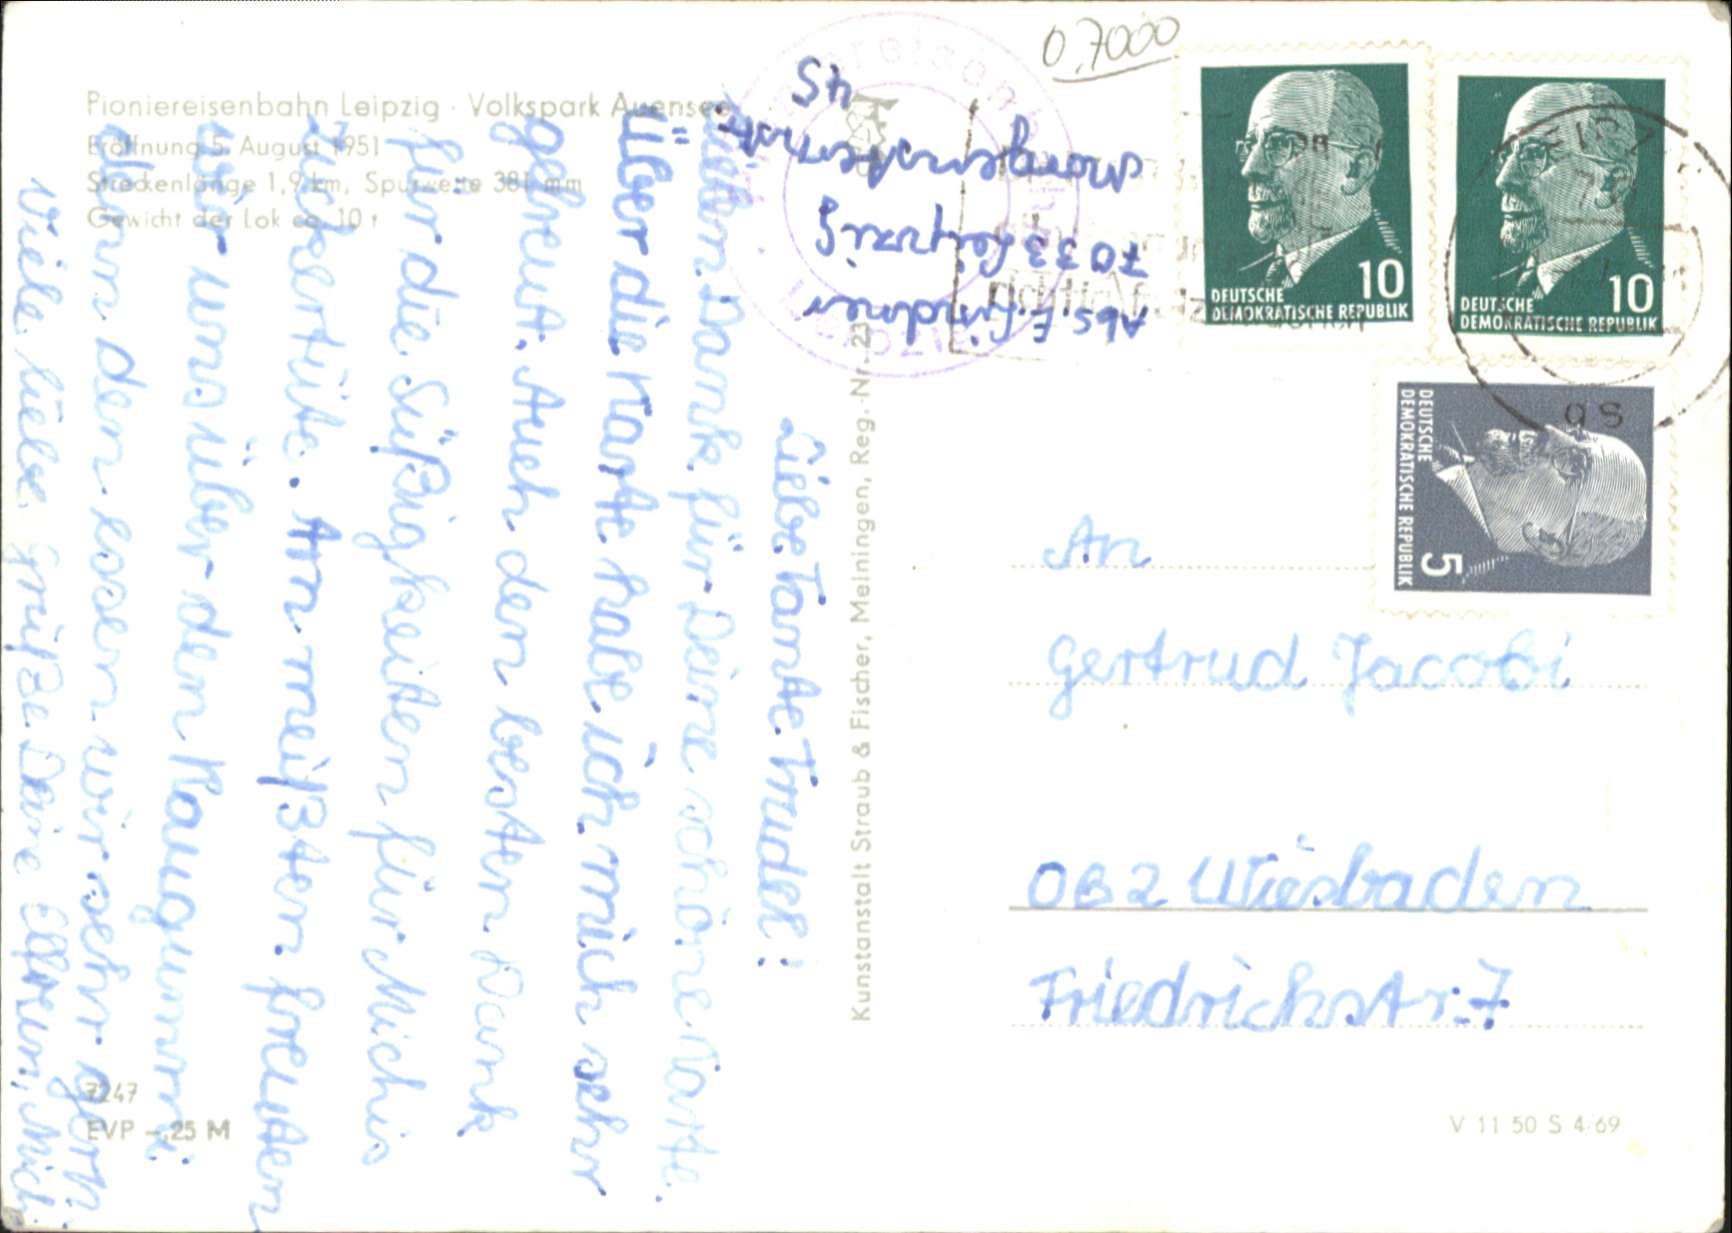 Pioniereisenbahn Leipzig · Volkspark Auensee
Eröffnung 5. August 1951
Streckenlänge 1,9 km, Spurweite 381 mm
Gewicht der Lok ca. 10 t
Liebe Tante Trudel!
Vielen Dank für Deine schöne Karte.
Über die Karte habe ich mich sehr
gefreut. Auch den besten Dank
für die Süßigkeiten für Michis
Zuckertüte. Am meißten freuten
wir uns über den Kaugummi
denn den essen wir sehr gern
Viele liebe Grüße Deine
Abs. E.
7033 Leipzig
Morgensternstr.
45
0,7000
DEUTSCHE
DEMOKRATISCHE REPUBLIK
10
DEUTSCHE
DEMOKRATISCHE REPUBLIK
10
DEUTSCHE
DEMOKRATISCHE REPUBLIK
5
An
Gertrud Jacobi
062 Wiesbaden
Friedrichstr. 7
Kunstanstalt Straub & Fischer, Meiningen, Reg.-Nr. 23
7247
EVP -,25 M
V 11 50 S 4-69